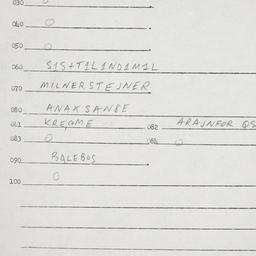 030 0
040 0
050 0
060 S1S+T1L1ND1M1L
070 MILNERSTEJNER
080 ANAKSANBE
081 KREGME 082 ARAJNFOR QS
083 0 084 0
090 BALEBOS
100 0